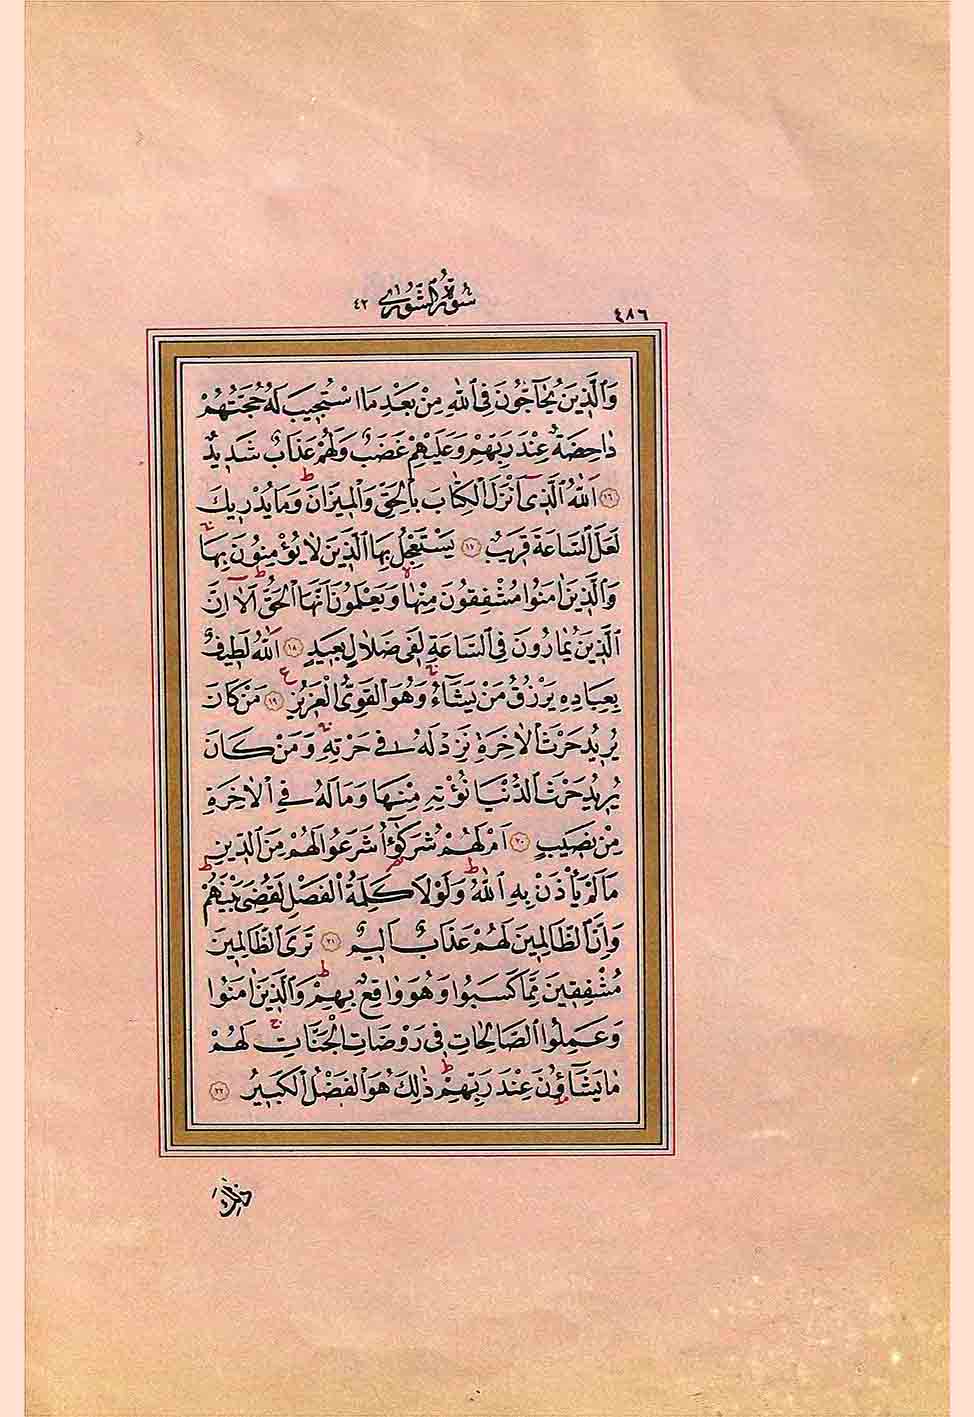 ٤٨٦
سُورَةُ الشُّورٰى ٤٢
وَالَّذٖينَ يُحَٓاجُّونَ فِى اللّٰهِ مِنْ بَعْدِ مَا اسْتُجٖيبَ لَهُ حُجَّتُهُمْ
دَاحِضَةٌ عِنْدَ رَبِّهِمْ وَعَلَيْهِمْ غَضَبٌ وَلَهُمْ عَذَابٌ شَدٖيدٌ
﴿١٦﴾ اَللّٰهُ الَّذٖٓى اَنْزَلَ الْكِتَابَ بِالْحَقِّ وَالْمٖيزَانَ ط وَمَا يُدْرٖيكَ
لَعَلَّ السَّاعَةَ قَرٖيبٌ ﴿١٧﴾ يَسْتَعْجِلُ بِهَا الَّذٖينَ لَا يُؤْمِنُونَ بِهَا ج
وَالَّذٖينَ اٰمَنُوا مُشْفِقُونَ مِنْهَا لا وَيَعْلَمُونَ اَنَّهَا الْحَقُّ ط اَلَٓا اِنَّ
الَّذٖينَ يُمَارُونَ فِى السَّاعَةِ لَفٖى ضَلَالٍ بَعٖيدٍ ﴿١٨﴾ اَللّٰهُ لَطٖيفٌ
بِعِبَادِهٖ يَرْزُقُ مَنْ يَشَٓاءُ ج وَهُوَ الْقَوِىُّ الْعَزٖيزُ ع ﴿١٩﴾ مَنْ كَانَ
يُرٖيدُ حَرْثَ الْاٰخِرَةِ نَزِدْ لَهُ فٖى حَرْثِهٖ ج وَمَنْ كَانَ
يُرٖيدُ حَرْثَ الدُّنْيَا نُؤْتِهٖ مِنْهَا وَمَا لَهُ فِى الْاٰخِرَةِ
مِنْ نَصٖيبٍ ﴿٢٠﴾ اَمْ لَهُمْ شُرَكٰٓؤُا شَرَعُوا لَهُمْ مِنَ الدّٖينِ
مَا لَمْ يَأْذَنْ بِهِ اللّٰهُ ط وَلَوْلَا كَلِمَةُ الْفَصْلِ لَقُضِىَ بَيْنَهُمْ ط
وَاِنَّ الظَّالِمٖينَ لَهُمْ عَذَابٌ اَلٖيمٌ ﴿٢١﴾ تَرَى الظَّالِمٖينَ
مُشْفِقٖينَ مِمَّا كَسَبُوا وَهُوَ وَاقِعٌ بِهِمْ ط وَالَّذٖينَ اٰمَنُوا
وَعَمِلُوا الصَّالِحَاتِ فٖى رَوْضَاتِ الْجَنَّاتِ ج لَهُمْ
مَا يَشَٓاؤُنَ عِنْدَ رَبِّهِمْ ط ذٰلِكَ هُوَ الْفَضْلُ الْكَبٖيرُ ﴿٢٢﴾
ذٰلِكَ